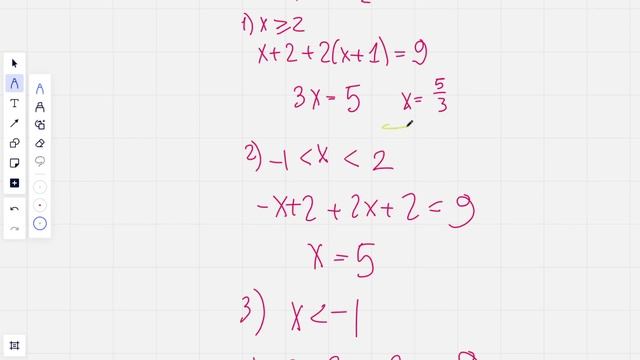 1) x ≥ 2
x+2+2(x+1) = 9
3x = 5 x = 5/3
2) -1 < x < 2
-x+2 + 2x+2 = 9
x = 5
3) x < -1